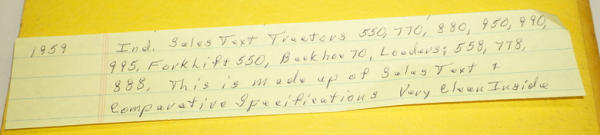 1959 Ind. Sales Text Tractors 550, 770, 880, 950, 990,
995, Forklift 550, Backhoe 70, Loaders; 558, 778,
888, This is made up of Sales Text &
Comparative Specifications Very Clean Inside